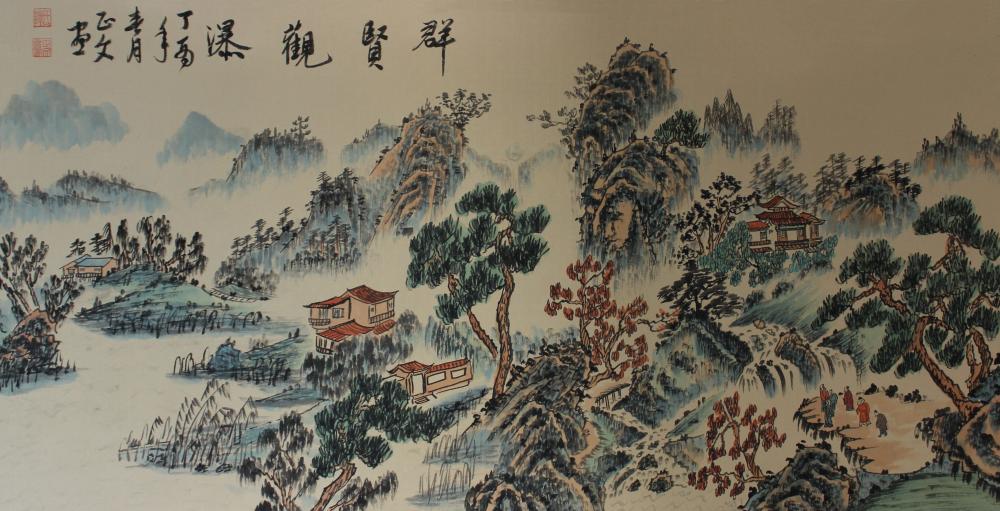 群賢觀瀑
丁酉
年
春月
正文
畫